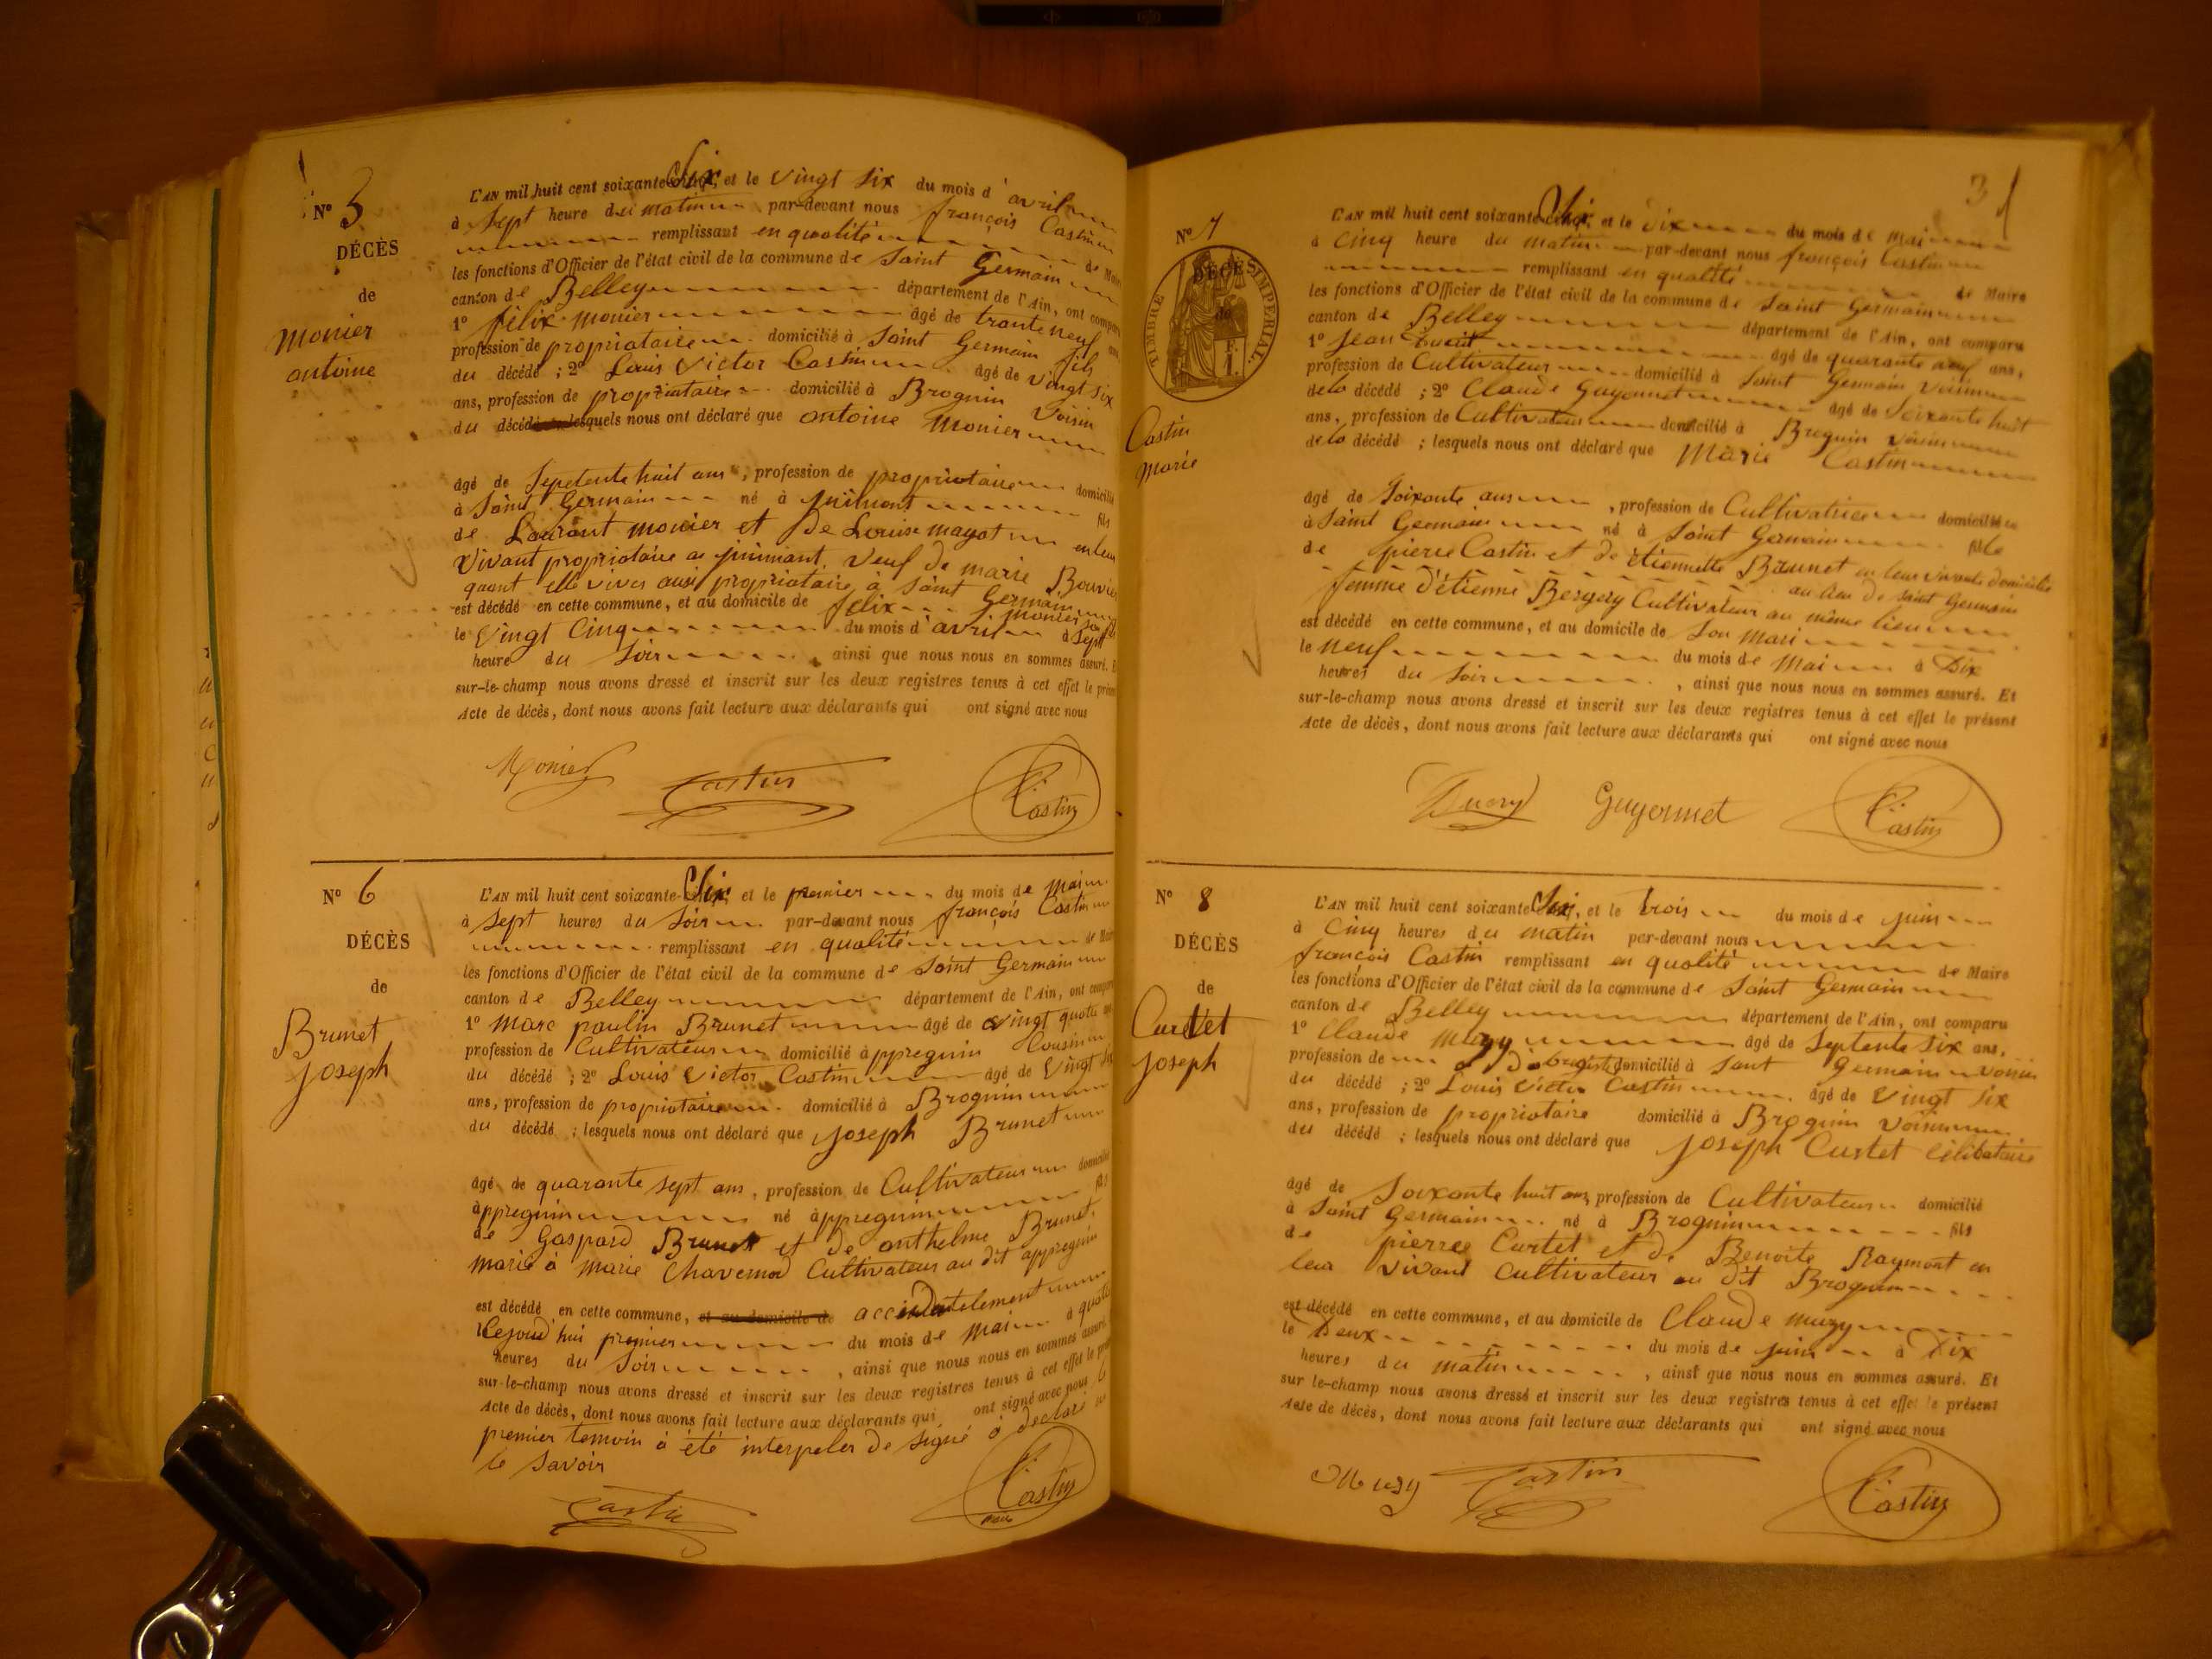 N° 5
DÉCÈS
de
Monier
antoine
L'AN mil huit cent soixante Six, et le vingt six du mois d'avril
à Sept heure du matin par-devant nous françois Castin
remplissant en qualité de Maire
les fonctions d'Officier de l'état civil de la commune de Saint Germain
canton de Belley département de l'Ain, ont comparu
1° félix Monier âgé de trante neuf ans
profession de propriataire domicilié à Saint Germain fils
du décédé ; 2° Louis Victor Castin âgé de vingt six
ans, profession de propriataire domicilié à Brognin Voisin
du décédé lesquels nous ont déclaré que antoine Monier
âgé de Sepetente huit ans, profession de propriataire domicilié
à Saint Germain né à fils
de Laurant Monier et de Louise mayot en leur
Vivant propriataire a Veuf de marie Bouvier
quant elle vives ausi propriataire à Saint Germain
est décédé en cette commune, et au domicile de félix Monier son fils
le Vingt Cinq du mois d'avril à Sept
heure du Soir, ainsi que nous nous en sommes assuré. Et
sur-le-champ nous avons dressé et inscrit sur les deux registres tenus à cet effet le présent
Acte de décès, dont nous avons fait lecture aux déclarants qui ont signé avec nous
Monier Castin Castin
N° 6
DÉCÈS
de
Brunet
joseph
L'AN mil huit cent soixante-Six, et le premier du mois de Mai
à Sept heures du Soir par-devant nous françois Castin
remplissant en qualité de Maire
les fonctions d'Officier de l'état civil de la commune de Saint Germain
canton de Belley département de l'Ain, ont comparu
1° Marc paulin Brunet âgé de vingt quatre ans
profession de Cultivateur domicilié à appregnin Cousin
du décédé ; 2° Louis Victor Castin âgé de Vingt six
ans, profession de propriataire domicilié à Brognin
du décédé ; lesquels nous ont déclaré que joseph Brunet
âgé de quarante sept ans, profession de Cultivateur domicilié
à appregnin né à appregnin fils
de Gaspard Brunet et de anthelme Brunet,
marié à Marie Chavernod Cultivateur au dit appregnin
est décédé en cette commune, et au domicile de accidentelement
Cejourd'hui premier du mois de Mai à quatre
heures du Soir, ainsi que nous nous en sommes assuré.
sur-le-champ nous avons dressé et inscrit sur les deux registres tenus à cet effet le présent
Acte de décès, dont nous avons fait lecture aux déclarants qui ont signé avec nous le
premier temoin à été interpeler de signé à declaré ne
le Savoir
Castin Castin
3
N° 7
TIMBRE IMPERIAL
DÉCÈS
de
Castin
Marie
L'AN mil huit cent soixante Six, et le dix du mois de Mai
à Cinq heure du matin par-devant nous françois Castin
remplissant en qualité de Maire
les fonctions d'Officier de l'état civil de la commune de Saint Germain
canton de Belley département de l'Ain, ont comparu
1° Jean âgé de quarante neuf ans,
profession de Cultivateur domicilié à Saint Germain Voisin
de la décédé ; 2° Claude Guyonnet âgé de Soixante huit
ans, profession de Cultivateur domicilié à Brognin voisin
de la décédé ; lesquels nous ont déclaré que Marie Castin
âgé de Soixante ans, profession de Cultivatrice domiciliée
à Saint Germain né à Saint Germain fille
de pierre Castin et de etiennette Brunet en leur vivant domiciliés
au lieu de Saint Germain
femme d'étienne Bergery Cultivateur au même lieu
est décédé en cette commune, et au domicile de Son mari
le neuf du mois de Mai à Dix
heures du Soir, ainsi que nous nous en sommes assuré. Et
sur-le-champ nous avons dressé et inscrit sur les deux registres tenus à cet effet le présent
Acte de décès, dont nous avons fait lecture aux déclarants qui ont signé avec nous
Guyonnet Castin
N° 8
DÉCÈS
de
Curtet
joseph
L'AN mil huit cent soixante Six, et le trois du mois de juin
à Cinq heures du matin par-devant nous
françois Castin remplissant en qualité de Maire
les fonctions d'Officier de l'état civil de la commune de Saint Germain
canton de Belley département de l'Ain, ont comparu
1° Claude Muzy âgé de Septente Six ans,
profession de domicilié à Saint Germain voisin
du décédé ; 2° Louis Victor Castin âgé de Vingt Six
ans, profession de propriataire domicilié à Brognin Voisin
du décédé ; lesquels nous ont déclaré que joseph Curtet Célibataire
âgé de Soixante huit ans, profession de Cultivateur domicilié
à Saint Germain né à Brognin fils
de pierre Curtet et de Benoite Raymont en
leur vivant Cultivateur au dit Brognin
est décédé en cette commune, et au domicile de Claude muzy
le Deux du mois de juin à Dix
heures du matin, ainsi que nous nous en sommes assuré. Et
sur le-champ nous avons dressé et inscrit sur les deux registres tenus à cet effet le présent
Acte de décès, dont nous avons fait lecture aux déclarants qui ont signé avec nous
Muzy Castin Castin